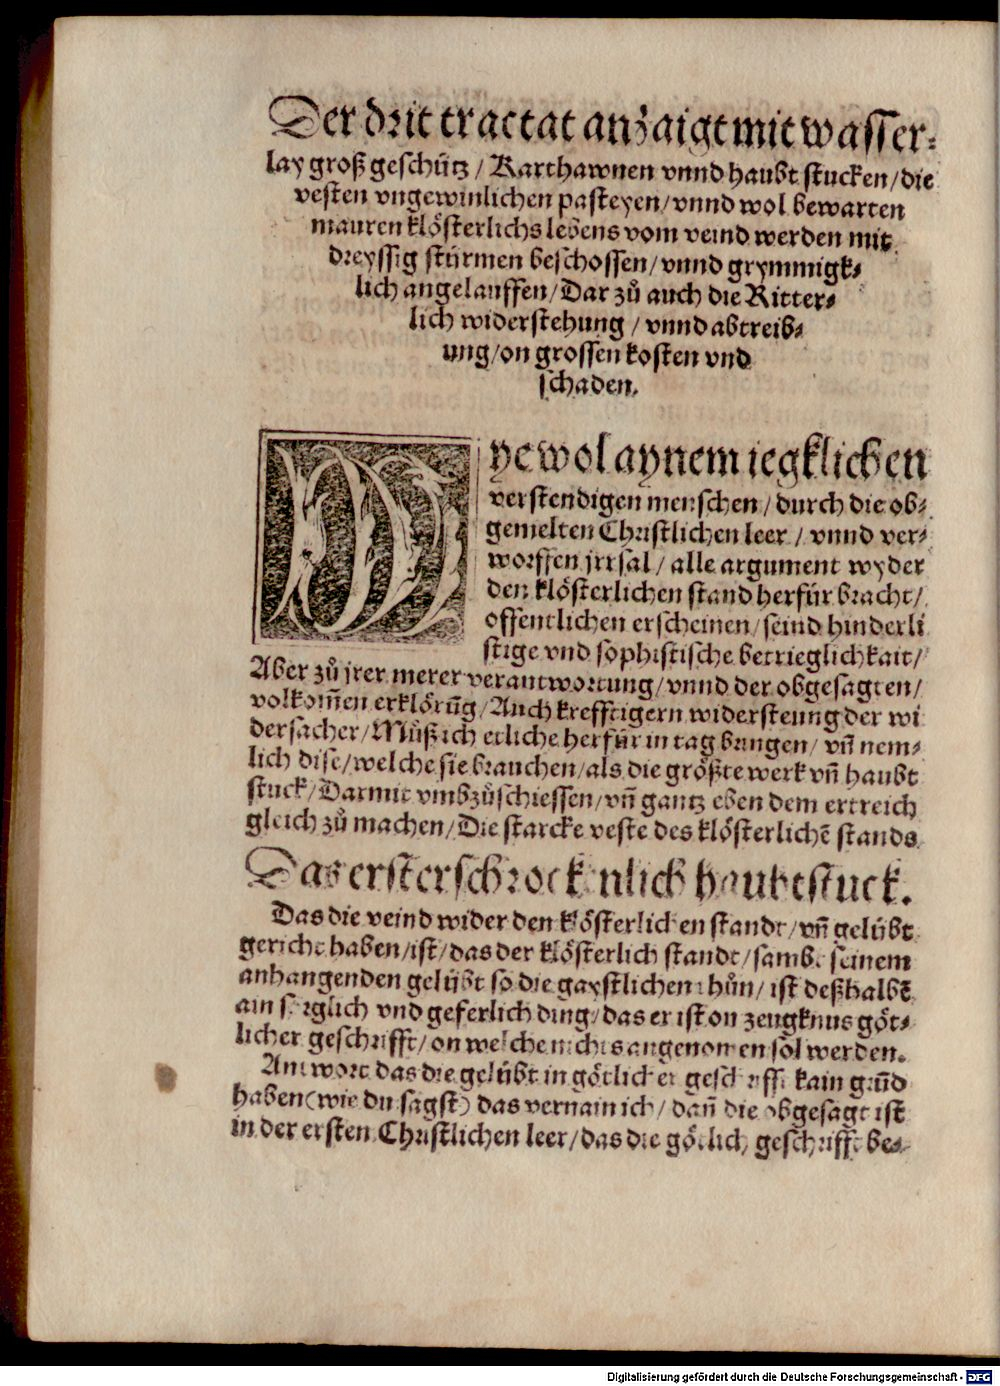 Der drit tractat anzaigt mit wasser⸗
lay groß geschütz / Karthawnen vnnd haubt stucken / die
vesten vngewinlichen pasteyen / vnnd wol bewarten
mauren klösterlichs lebens vom veind werden mit
dreyssig stürmen beschossen / vnnd grymmigk⸗
lich angelauffen / Dar zů auch die Ritter⸗
lich widerstehung / vnnd abtreib⸗
ung / on grossen kosten vnd
schaden.
Wyewol aynem iegklichen
verstendigen menschen / durch die ob⸗
gemelten Christlichen leer / vnnd ver⸗
worffen jrrsal / alle argument wyder
den klösterlichen stand herfür bracht /
offentlichen erscheinen / seind hinderli
stige vnd sophistische betrieglichkait /
Aber zů jrer merer verantwortung / vnnd der obgesagten /
volkom̄en erklörūg / Auch krefftigern widersteung der wi
dersacher / Můß ich etliche herfür in tag bringen / vn̄ nem⸗
lich dise / welche sie brauchen / als die größte werk vn̄ haubt
stuck / Darmit vmbzůschiessen / vn̄ gantz eben dem ertreich
gleich zů machen / Die starcke veste des klösterlichē stands.
Das erst erschrockenlich haubtstuck.
Das die veind wider den klösterlichen standt / vn̄ gelübt
gericht haben / ist / das der klösterlich standt / sambt seinem
anhangenden gelübt so die gaystlichen thůn / ist deßhalbē
ain sorglich vnd geferlich ding / das er ist on zeugknus göt⸗
licher geschrifft / on welche nichts angenomen sol werden.
Antwort das die gelübt in götlicher geschrifft kain grūd
haben (wie du sagst) das vernain ich / dan̄ die obgesagt ist
in der ersten Christlichen leer / das die götlich geschrifft be⸗
Digitalisierung gefördert durch die Deutsche Forschungsgemeinschaft - DFG